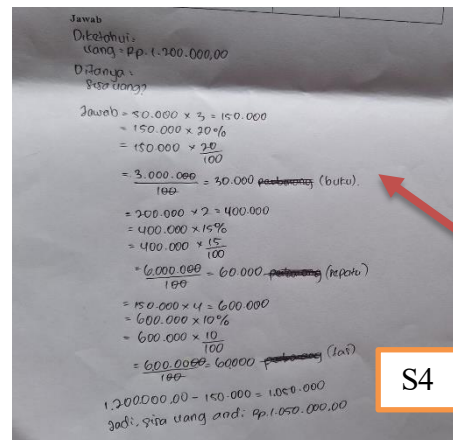 Jawab
Diketahui:
Uang = Rp. 1.200.000,00
Ditanya =
Sisa uang?
Jawab = 50.000 × 3 = 150.000
= 150.000 × 20%
= 150.000 × 20/100
= 3.000.000/100 = 30.000 perbarang (buku).
= 200.000 × 2 = 400.000
= 400.000 × 15%
= 400.000 × 15/100
= 6.000.000/100 = 60.000 (sepatu)
= 150.000 × 4 = 600.000
= 600.000 × 10%
= 600.000 × 10/100
= 600.0000/100 = 60000 perbarang (tas)
1.200.000,00 - 150.000 = 1.050.000
Jadi, sisa uang andi Rp. 1.050.000,00
S4